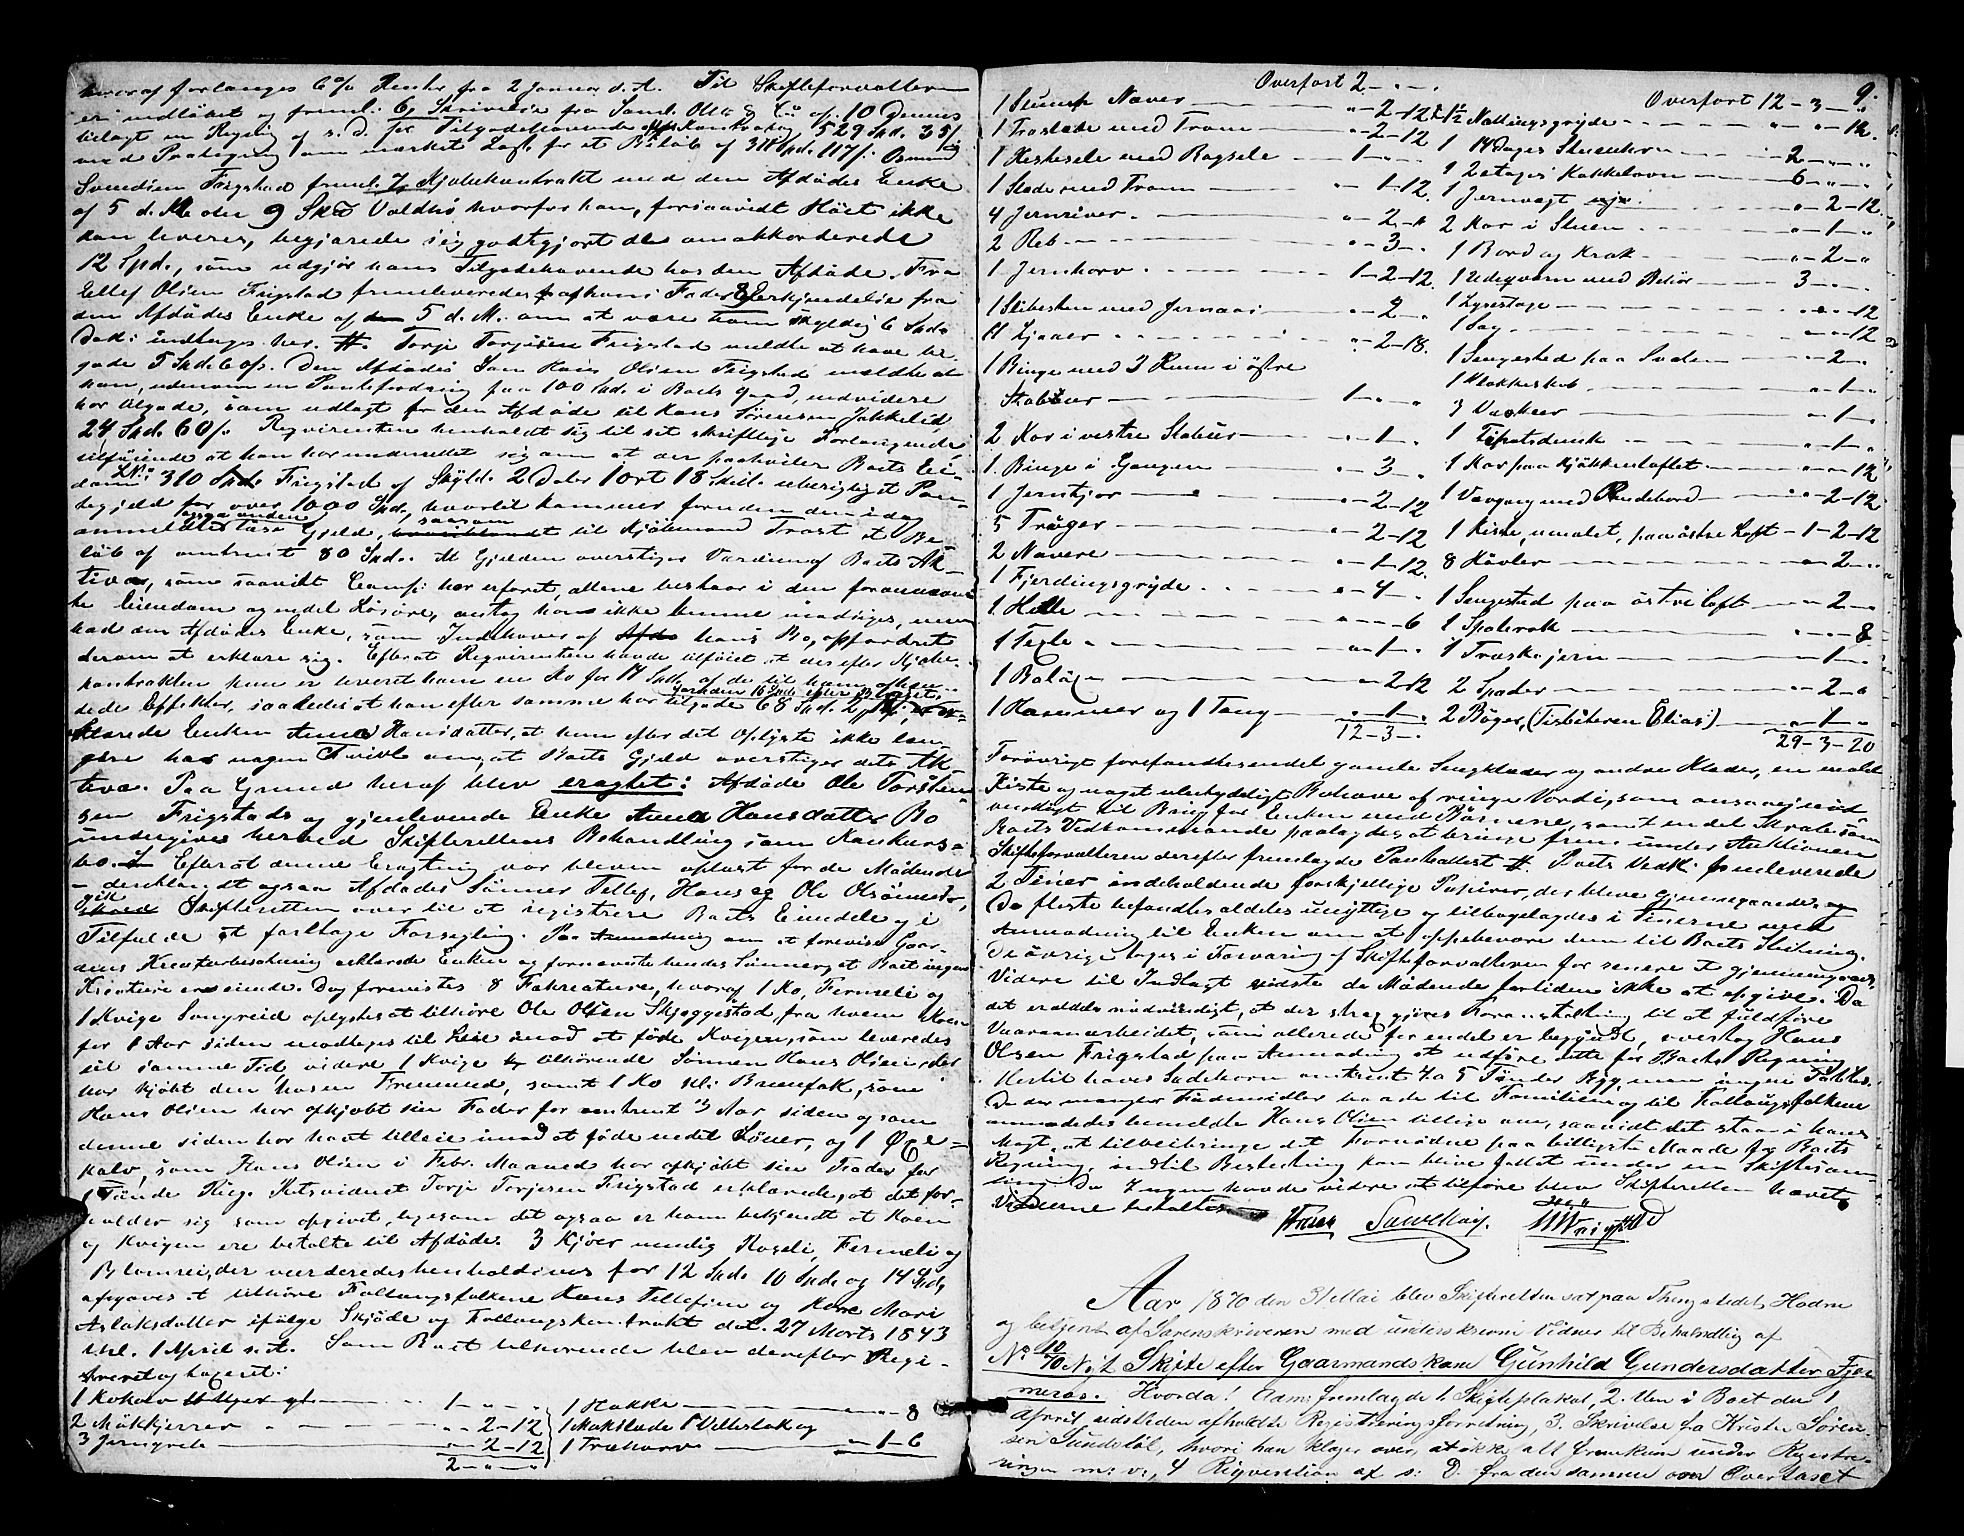 hvoraf forlanges 6% Renter fra 2 Januar d. A. Til Skifteforvalteren
er indløbet og freml. 6, Skrivelse fra
bilagt en Regning af s. D. for Tilgodehavende 529 Spd. 35 β
med Protegning om mærket Løsh. for et Beløb af 117 β. Osmund
Svendsen Frigstad freml. 7 Kjøbekontrakt med den Afdødes Enke
af 5 d. M. over 9 Skd Voldhø, hvorfor han, forsaavidt Høet ikke
kan leveres, begjærede sig godtgjort de omakkorderede
12 Spd., som udgjør hans Tilgodehavende hos den Afdøde. Fra
Ellef Olsen Frigstad fremleveredes
den Afdødes Enke af 5 d. M. om at være ham skyldig 6 Spd.
Dok. indtages her. #. Torje Torjesen Frigstad meldte at have til
gode 5 Spd. 60 β. Den Afdødes Søn Hans Olsen Frigstad meldte at
han, udenom en Pantefordring paa 100 Spd. i Boets Gaard, endvidere
har tilgode, som udlagt for den Afdøde til Hans Sørensen Jakkelid,
24 Spd. 60 β. Reqvirenten henholdt sig til sit skriftlige Forlangende,
tilføiende at han har underrettet sig om at der paahviler Boets Ei-
dom LNo 310 Frigstad af Skyld 2 Daler 1 ort 18 Skil. uberigtiget Pan-
tegjeld for over 1000 Spd., hvortil kommer foruden den idag
anmeldte løse Gjeld, saasom til Kjøbmand Trost et Be-
løb af omtrent 80 Spd. At Gjelden overstiger Værdien af Boets Ak-
tiva, som saavidt Comp. har erfaret, allene bestaar i den forannævn
te Eiendom og endel Løsøre, antog han ikke kunne modsiges, men
bad den Afdødes Enke, som Indehaver af hans Bo, opfordret
derom at erklære sig. Efterat Reqvirenten havde tilføiet at der efter Kjøbe-
kontrakten kun er leveret ham en Ko for 17 Spd. af de til ham afhæn-
dede Effekter, saaledes at han efter samme har tilgode 68 Spd. 2
klærede Enken Anne Hansdatter, at hun efter det Oplyste ikke læn
gere har nogen Tvivl om, at Boets Gjeld overstiger dets Ak
tiva. Paa Grund heraf blev eragtet: Afdøde Ole Torstein
sen Frigstads og gjenlevende Enke Anne Hansdatters Bo
undergives herved Skifterettens Behandling som Konkurs-
bo. Efterat denne Eragtning var bleven oplæst for de Mødende
- deriblandt ogsaa Afdødes Sønner Tellef, Hans og Ole Olssønner,
gik Skifteretten over til at registrere Boets Eiendele og i
Tilfælde at foretage Forsegling. Paa Anmodning om at forevise Gaar
dens Kreaturbesætning erklærede Enken og fornævnte hendes Sønner, at Boet ingen
Kreature er eiende. Dog forevistes 8 Fækreature, hvoraf 1 Ko, Fermeli og
1 Kvige Sangreid oplystes at tilhøre Ole Olsen Skjeggestad, fra hvem Koen
for 1 Aar siden modtoges til Leie imod at føde Kvigen, som leveredes
til samme Tid, videre 1 Kvige tilhørende Sønnen Hans Olsen, der
har kjøbt den hos en Fremmed, samt 1 Ko som
Hans Olsen har afkjøbt sin Fader for omtrent 3 Aar siden og som
denne siden har havt tilleie imod at føde endel Løver, og 1 Oxe-
kalv, som Hans Olsen i Febr. Maaned har afkjøbt sin Fader for
1 Tønde Rug. Retsvidnet Torje Torjesen Frigstad erklærede, at det for-
holder sig som opgivet, ligesom det ogsaa er ham bekjendt at Koen
og Kvigen ere betalte til Afdøde. 3 Kjøer nemlig Rosli, Fermeli og
Blomrei, der værderedes henholdsvis for 12 Spd. 10 Spd. og 14 Spd.,
opgaves at tilhøre Follougsfolkene Hans Tellefsen og Kone Mari
Aslaksdatter ifølge Skjøde og Follougskontrakt dat. 27 Marts 1843
thl. 1 April s. A. Som Boet tilhørende blev derefter Regi-
streret og taxeret:
1 Kokeovn - 1 - " - "
2 Møkkjerrer - " - 2 - 12
3 Jerngreb - " - 2 - 12
2 - " - "
1 Hakke - " - " - 8
1 Møkslæde
1 Trækorv - " - 1 - 6
9.
Overført 2 - " - "
1 Stump Næver - " - 2 - 12
1 Træslæde med Tram - " - 2 - 12
1 Hestesele med Bogsele - 1 - "
1 Slæde med Tram - " - 1 - 12.
4 Jernriver - " - 2 - "
2 Reb - " - 3 - "
1 Jernharv - 1 - 2 - 12.
1 Slibesten med Jernaas - " - 2 - "
4 Ljaaer - " - 2 - 18.
1 Binge med 2 Rum i østre
Stabbur - 1 - " - "
2 Kar i vestre Stabur - " - 1 - "
1 Binge i Gangen - " - 3 - "
1 Jernskjor - " - 2 - 12
5 Trøger - " - 2 - 12
2 Navere - " - 1 - 12.
1 Fjerdingsgryde - " - 4 - "
1 Helle - " - " - 6
1 Texle - " - 1 - "
1 Boløx - " - 2 - 12
1 Hammer og 1 Tang - " - 1 - "
12 - 3 - "
Overført 12 - 3 - "
1 1/2 Notlingsgryde - " - " - 12.
1 14 Dages Stueuhr - 2 - " - "
1 2 etages Kakkelovn - 6 - " - "
1 Jernvægt - " - 2 - 12.
2 Kar i Stuen - " - 1 - "
1 Bord og Krak - " - 2 - "
1 Udeqværn med Behør - 3 - " - "
1 Lysestage - " - " - 12
1 Sag - " - " - 12
1 Sengested paa Svalen - " - 2 - "
1 Klokkeskab - " - 1 - "
3 Væskeer - " - 1 - "
1 Tipotsdunk - " - 1 - "
1 Kar paa Kjøkkenloftet - " - " - 12
1 Vævgang med Rendebord - " - 2 - 12
1 Kiste, umalet, paa østre Loft - 1 - 2 - 12
8 Høvler - " - 2 - "
1 Sengested paa østre Loft - " - 2 - "
1 Spolerok - " - " - 8
1 Træskojern - " - 1 - "
2 Spader - " - 2 - "
2 Bøger, (Tisbiteren Elias) - " - 1 - "
29 - 3 - 20
Forøvrigt forefandtes endel gamle Sengklæder og andre Klæder, en malet
Kiste og noget ubetydeligt Bohave af ringe Værdi, som ansaaes nød
vendigt til Brug for Enken med Børnene, samt endel Skrab, som
Boets Vedkommende paalagdes at bringe frem under Auktionen
Skifteforvalteren derefter fremlagde Panteattest #. Boets Vedk. fremleverede
2 Tiner indeholdende forskjellige Papirer, der bleve gjennemgaaede.
De fleste befandtes aldeles unyttige og tilbagelagdes i Tinerne med
Anmodning til Enken om at opbevare dem til Boets Slutning.
De øvrige toges i Forvaring af Skifteforvalteren for senere at gjennemgaaes.
Videre til Indtægt vidste de Mødende fortiden ikke at opgive. Da
det ansaaes nødvendigt, at der strax gjøres Foranstaltning til at fuldføre
Vaaraarbeidet, som allerede for endel er begyndt, overtog Hans
Olsen Frigstad paa Anmodning at udføre dette for Boets Regning.
Hertil haves Sædekorn omtrent 4 a 5 Tønder Byg, men ingen Poteter.
Da der mangler Fødemidler baade til Familien og til Follougsfolkene
anmodedes bemeldte Hans Olsen tillige om, saavidt det staar i hans
Magt, at tilveiebringe det Fornødne paa billigste Maade for Boets
Regning, indtil Bestemning kan blive fattet under en Skiftesam
ling. Da Ingen havde videre at tilføre blev Skifteretten hævet.
Vidnerne betaltes.
Aar 1870 den 31 Mai blev Skifteretten sat paa Thingstedet Hodne
og betjent af Sorenskriveren med underskrevne Vidner til Behandling af
No 10/70 Skifte efter Gaardmandskone Gunhild Gundersdatter Fje-
meros. Hvorda! Adm. fremlagde 1. Skifteplakat, 2. Den i Boet den 1
April sidstleden afholdte Registreringsforretning, 3. Skrivelse fra Krister Søren
sen Sundstøl, hvori han klager over, at ikke alt fremkom under Registre-
ringen m. v., 4 Reqvisition af s. D. fra den samme om Overtaxt